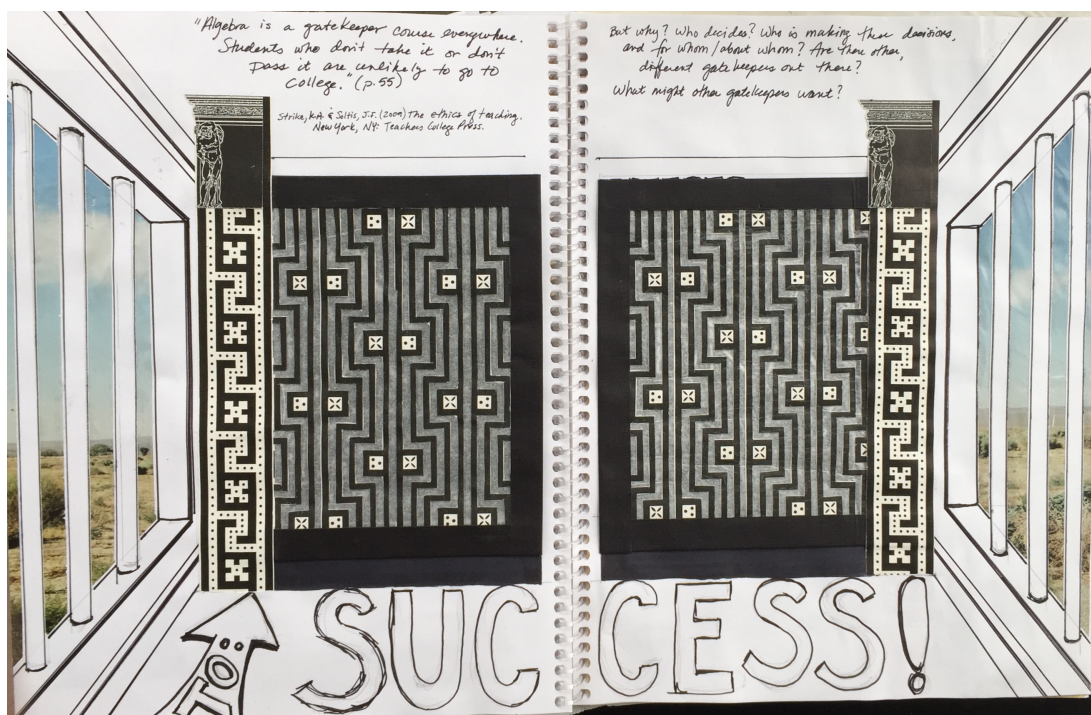 "Algebra is a gatekeeper course everywhere.
Students who don't take it or don't
pass it are unlikely to go to
college." (p.55)
Strike, K.A. & Soltis, J.F. (2009) The ethics of teaching.
New York, NY: Teachers College Press.
But why? Who decides? Who is making these decisions,
and for whom/about whom? Are there other,
different gatekeepers out there?
What might other gatekeepers want?
TO:
SUCCESS!